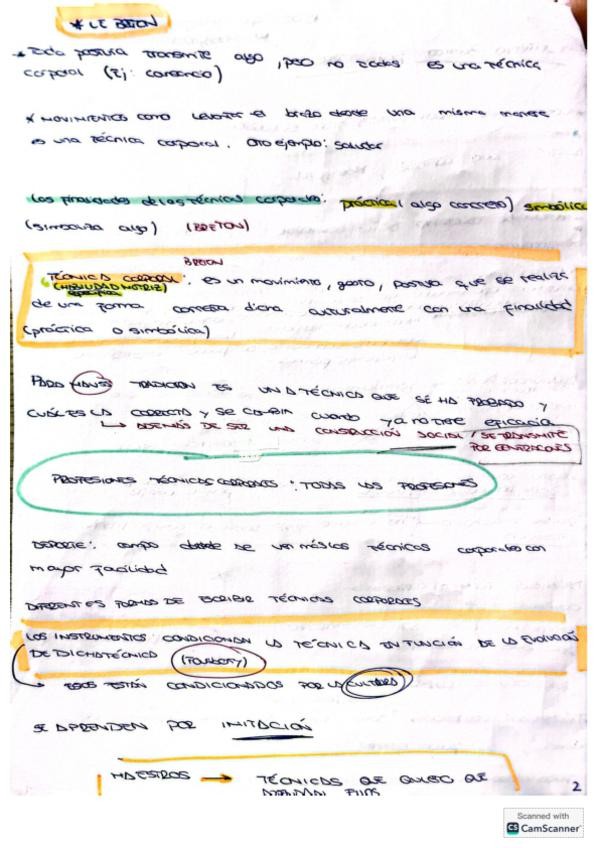 * LE BRETON
* Toda postura transmite algo, pero no todas es una técnica
corporal (Ej: cansancio)
* MOVIMIENTOS como levantar el brazo desde una misma manera
es una técnica corporal. Otro ejemplo: saludar
Las finalidades de las técnicas corporales: práctica (algo concreto) simbólica
(simboliza algo) (BRETON)
BRETON
TÉCNICA CORPORAL: es un movimiento, gesto, postura que se realiza
(HABILIDAD MOTRIZ)
específica
de una forma correcta dicha culturalmente con una finalidad
(práctica o simbólica)
PARA MAUSS TRADICIÓN ES UNA TÉCNICA QUE SE HA PROBADO Y
CUÁL ES LA CORRECTA y SE CAMBIA CUANDO YA NO TIENE EFICACIA
↳ ADEMÁS DE SER UNA CONSTRUCCIÓN SOCIAL / SE TRANSMITE
POR GENERACIONES
PROFESIONES TÉCNICAS CORPORALES: TODAS LAS PROFESIONES
DEPORTE: campo donde se ven más las técnicas corporales con
mayor facilidad
DIFERENTES FORMAS DE ESCRIBIR TÉCNICAS CORPORALES
LOS INSTRUMENTOS CONDICIONAN LA TÉCNICA EN FUNCIÓN DE LA EVOLUCIÓN
DE DICHA TÉCNICA
ESOS ESTÁN CONDICIONADOS POR LA CULTURA
SE APRENDEN POR IMITACIÓN
MAESTROS → TÉCNICAS QUE QUIERO QUE
APRENDAN ELLOS
2
Scanned with
CS CamScanner